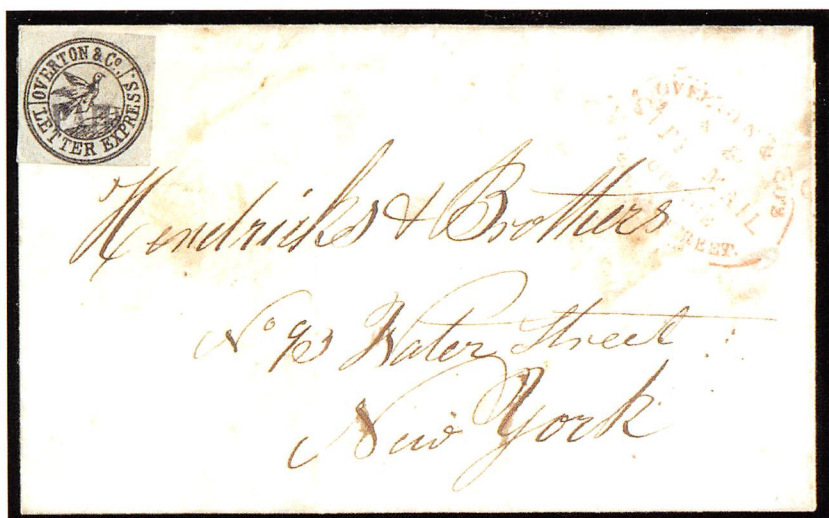 OVERTON & Co.
LETTER EXPRESS
PAID
OVERTON & Co's
MAIL
STREET.
Hendricks & Brothers
No 93 Water Street
New York